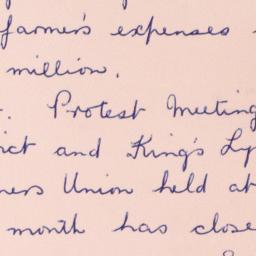 farmer's expenses
million.
. Protest Meeting
ict and King's Ly
ners Union held at
month has close